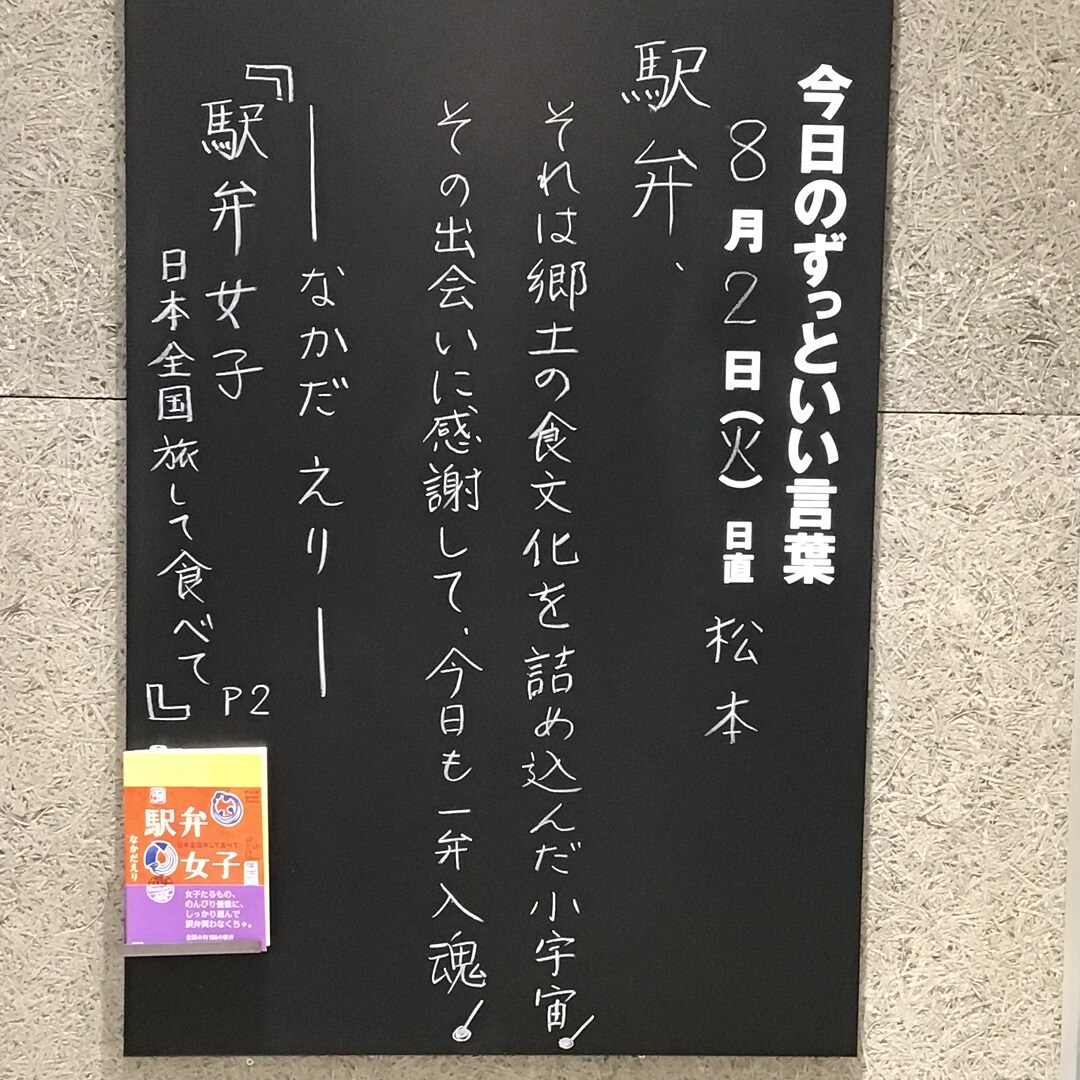 今日のずっといい言葉
8月2日(火) 日直 松本
駅弁、
それは郷土の食文化を詰め込んだ小宇宙!
その出会いに感謝して、今日も一弁入魂!
── なかだ えり ──
『駅弁女子
日本全国旅して食べて』
P2
駅弁
女子
日本全国旅して食べて
なかだえり
女子たるもの、
のんびり優雅に、
しっかり選んで
駅弁買わなくちゃ。